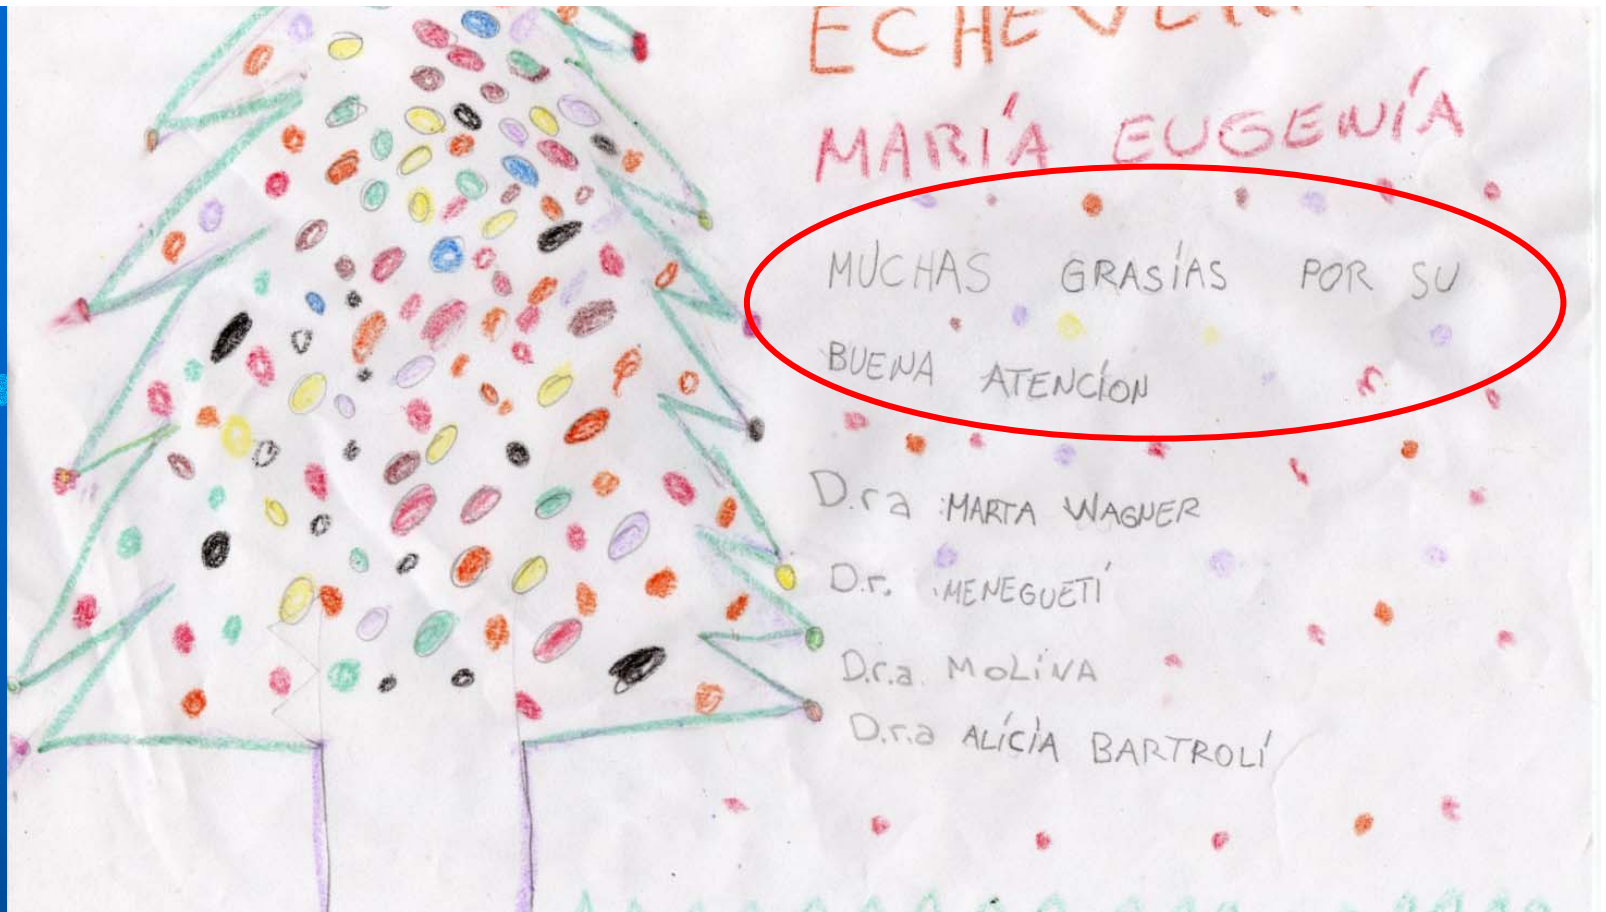 MARÍA EUGENÍA
MUCHAS GRASÍAS POR SU
BUENA ATENCÍON
D.r.a MARTA WAGNER
D.r. MENEGUETÍ
D.r.a. MOLÍNA
D.r.a ALÍCÍA BARTROLÍ